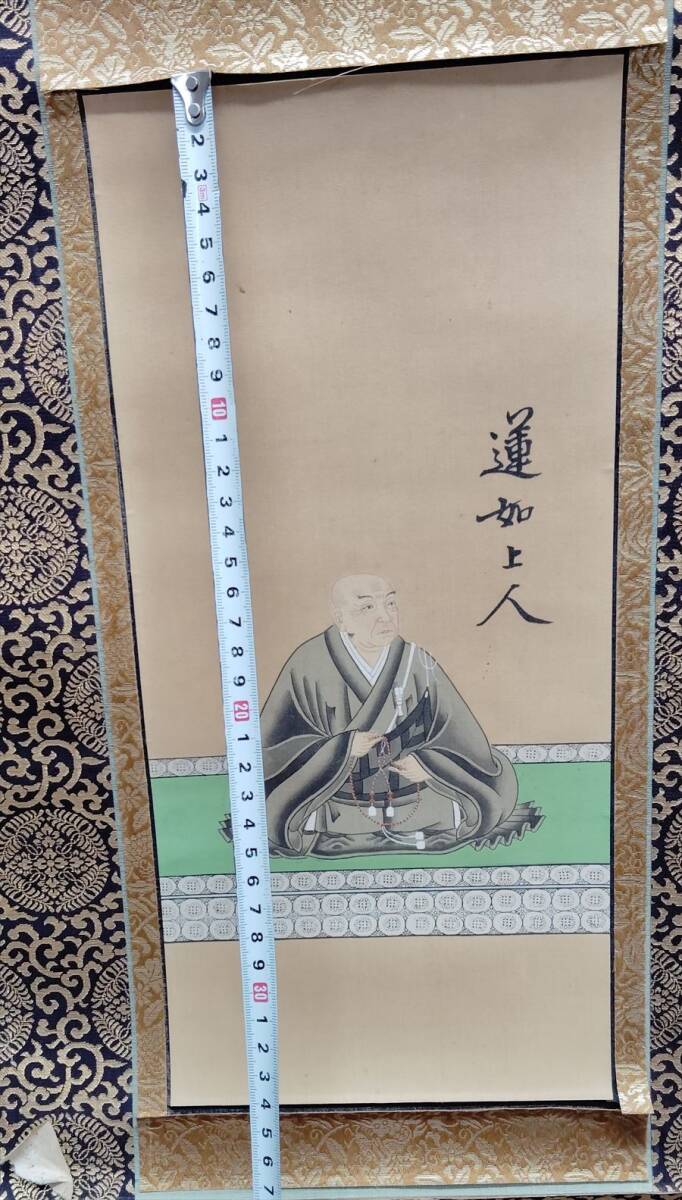 蓮如上人
2
3
3m
4
5
6
7
8
9
10
1
2
3
4
5
6
7
8
9
20
1
2
3
4
5
6
7
8
9
30
1
2
3
4
5
6
7